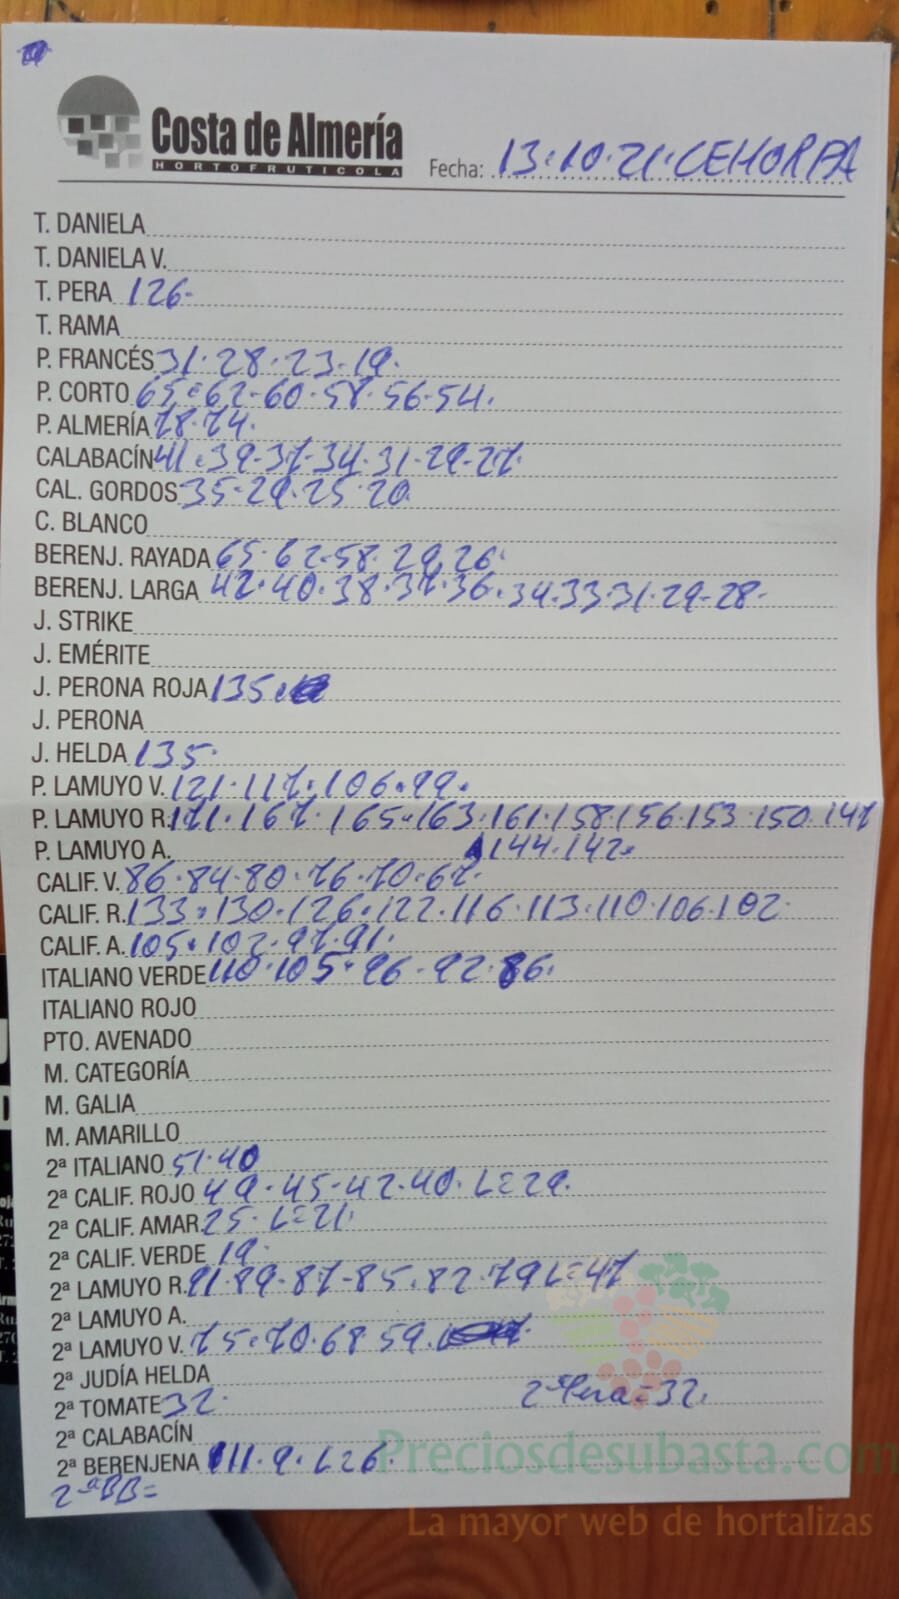 Costa de Almería
HORTOFRUTICOLA
Fecha: 13.10.21.CEHORPA
T. DANIELA
T. DANIELA V.
T. PERA 126-
T. RAMA
P. FRANCÉS 31.28.23.19.
P. CORTO 65.62-60.58.56-54.
P. ALMERÍA 78.74.
CALABACÍN 41.39-37-34-31-29-27.
CAL. GORDOS 35-29.25.20
C. BLANCO
BERENJ. RAYADA 65.62-58.29.26.
BERENJ. LARGA 42.40.38.37.36.34.33.31.29-28-
J. STRIKE
J. EMÉRITE
J. PERONA ROJA 135.
J. PERONA
J. HELDA 135.
P. LAMUYO V. 121.117.106.99.
P. LAMUYO R. 171.167.165.163.161.158.156.153.150.147
P. LAMUYO A. 144.142.
CALIF. V. 86.84.80.76.70.67.
CALIF. R. 133.130.126.122.116.113.110.106.102.
CALIF. A. 105.102.97.91.
ITALIANO VERDE 110.105.96-92.86.
ITALIANO ROJO
PTO. AVENADO
M. CATEGORÍA
M. GALIA
M. AMARILLO
2ª ITALIANO 51.40
2ª CALIF. ROJO 49.45-42.40. L=29.
2ª CALIF. AMAR. 25. L=21.
2ª CALIF. VERDE 19.
2ª LAMUYO R. 91.89-87-85.82.79 L=47
2ª LAMUYO A.
2ª LAMUYO V. 75.70.68.59.
2ª JUDÍA HELDA
2ª TOMATE 32. 2ªPera=32.
2ª CALABACÍN
2ª BERENJENA 11.9. L=6.
2ªBB=
Preciosdesubasta.com
La mayor web de hortalizas